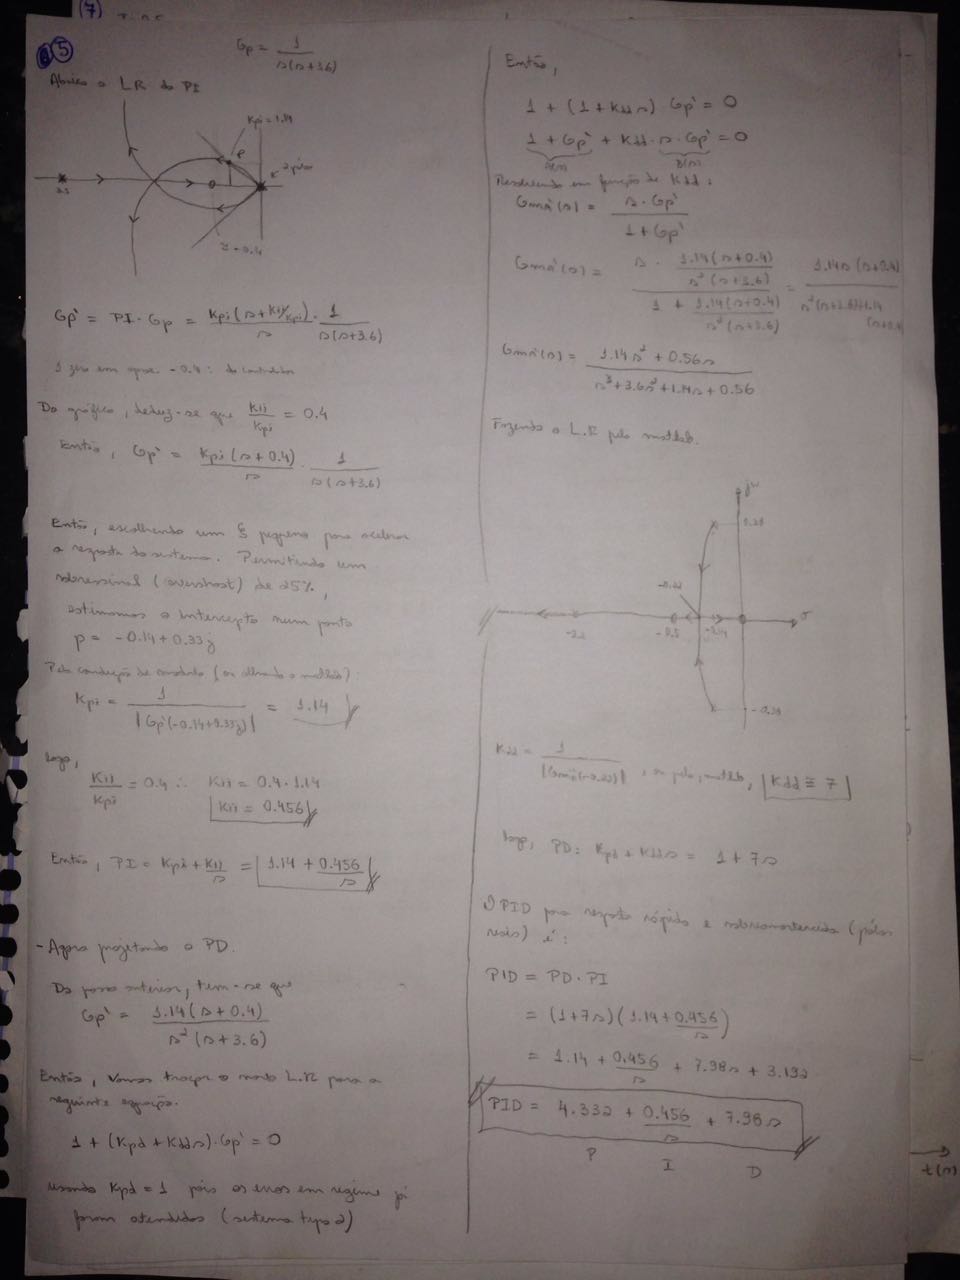 (7)
5
Gp = 1 / s(s+3.6)
Abaixo o LR do PI
Kpi = 1.14
p
2 pólos
-0.4
Gp' = PI · Gp = Kpi(s + Kii/Kpi) / s · 1 / s(s+3.6)
1 zero em aprox. -0.4 : do controlador
Do gráfico, deduz-se que Kii/Kpi = 0.4
Então, Gp' = Kpi(s+0.4) / s · 1 / s(s+3.6)
Então, escolhendo um ξ pequeno para acelerar
a resposta do sistema. Permitindo um
sobressinal (overshoot) de 25%,
estimamos o intercepto num ponto
p = -0.14 + 0.33j
Pela condição de módulo (ou olhando o matlab):
Kpi = 1 / |Gp'(-0.14+0.33j)| = 1.14
Logo,
Kii/Kpi = 0.4 ∴ Kii = 0.4 · 1.14
Kii = 0.456
Então, PI = Kpi + Kii/s = 1.14 + 0.456/s
- Agora projetando o PD.
Do passo anterior, tem-se que
Gp' = 1.14(s+0.4) / s²(s+3.6)
Então, vamos traçar o novo L.R para a
seguinte equação.
1 + (Kpd + Kdd s) · Gp' = 0
usando Kpd = 1 pois os erros em regime já
foram atendidos (sistema tipo 2)
Então,
1 + (1 + Kdd s) · Gp' = 0
1 + Gp' + Kdd · s · Gp' = 0
A(s) B(s)
Resolvendo em função de Kdd:
Gma'(s) = s · Gp' / 1 + Gp'
Gma'(s) = s · 1.14(s+0.4) / s²(s+3.6) / 1 + 1.14(s+0.4) / s²(s+3.6) = 1.14s(s+0.4) / s²(s+3.6)+1.14(s+0.4)
Gma'(s) = 1.14s² + 0.56s / s³ + 3.6s² + 1.14s + 0.56
Fazendo o L.R pelo matlab.
jw
0.28
-0.22
σ
-0.5
-0.14
-0.28
Kdd = 1 / |Gma'(-0.22)| , ou pelo matlab, Kdd ≅ 7
Logo, PD: Kpd + Kdd s = 1 + 7s
O PID para resposta rápida e sobreamortecida (pólos
reais) é:
PID = PD · PI
= (1+7s)(1.14 + 0.456/s)
= 1.14 + 0.456/s + 7.98s + 3.192
PID = 4.332 + 0.456/s + 7.98s
P I D
t(s)